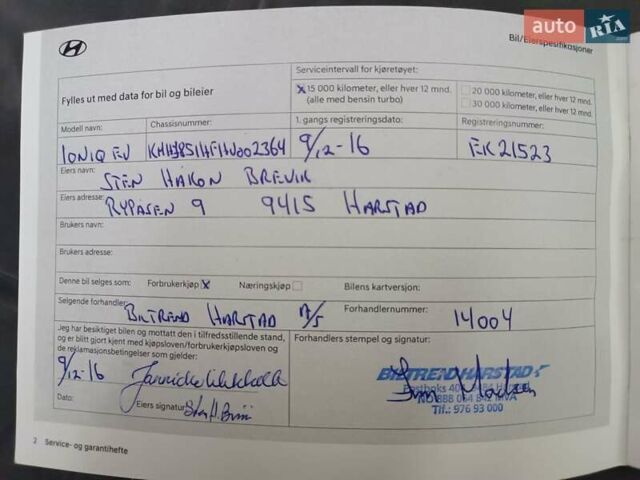 auto RIA.com
Bil/Eierspesifikasjoner
Fylles ut med data for bil og bileier
Serviceintervall for kjøretøyet:
x 15 000 kilometer, eller hver 12 mnd.
(alle med bensin turbo)
20 000 kilometer, eller hver 12 mnd.
30 000 kilometer, eller hver 12 mnd.
Modell navn:
Chassisnummer:
1. gangs registreringsdato:
Registreringsnummer:
IONIQ EV
9/12-16
EK21523
Eiers navn:
STEN HÅKON BREVIK
Eiers adresse:
RYPÅSEN 9 9415 HARSTAD
Brukers navn:
Brukers adresse:
Denne bil selges som: Forbrukerkjøp x Næringskjøp Bilens kartversjon:
Selgende forhandler:
BILTREND HARSTAD A/S
Forhandlernummer:
14004
Jeg har besiktiget bilen og mottatt den i tilfredsstillende stand,
og er blitt gjort kjent med kjøpsloven/forbrukerkjøpsloven og
de reklamasjonsbetingelser som gjelder:
9/12-16
Dato:
Eiers signatur:
Forhandlers stempel og signatur:
BILTREND HARSTAD
Postboks
Tlf.: 976 93 000
2 Service- og garantihefte